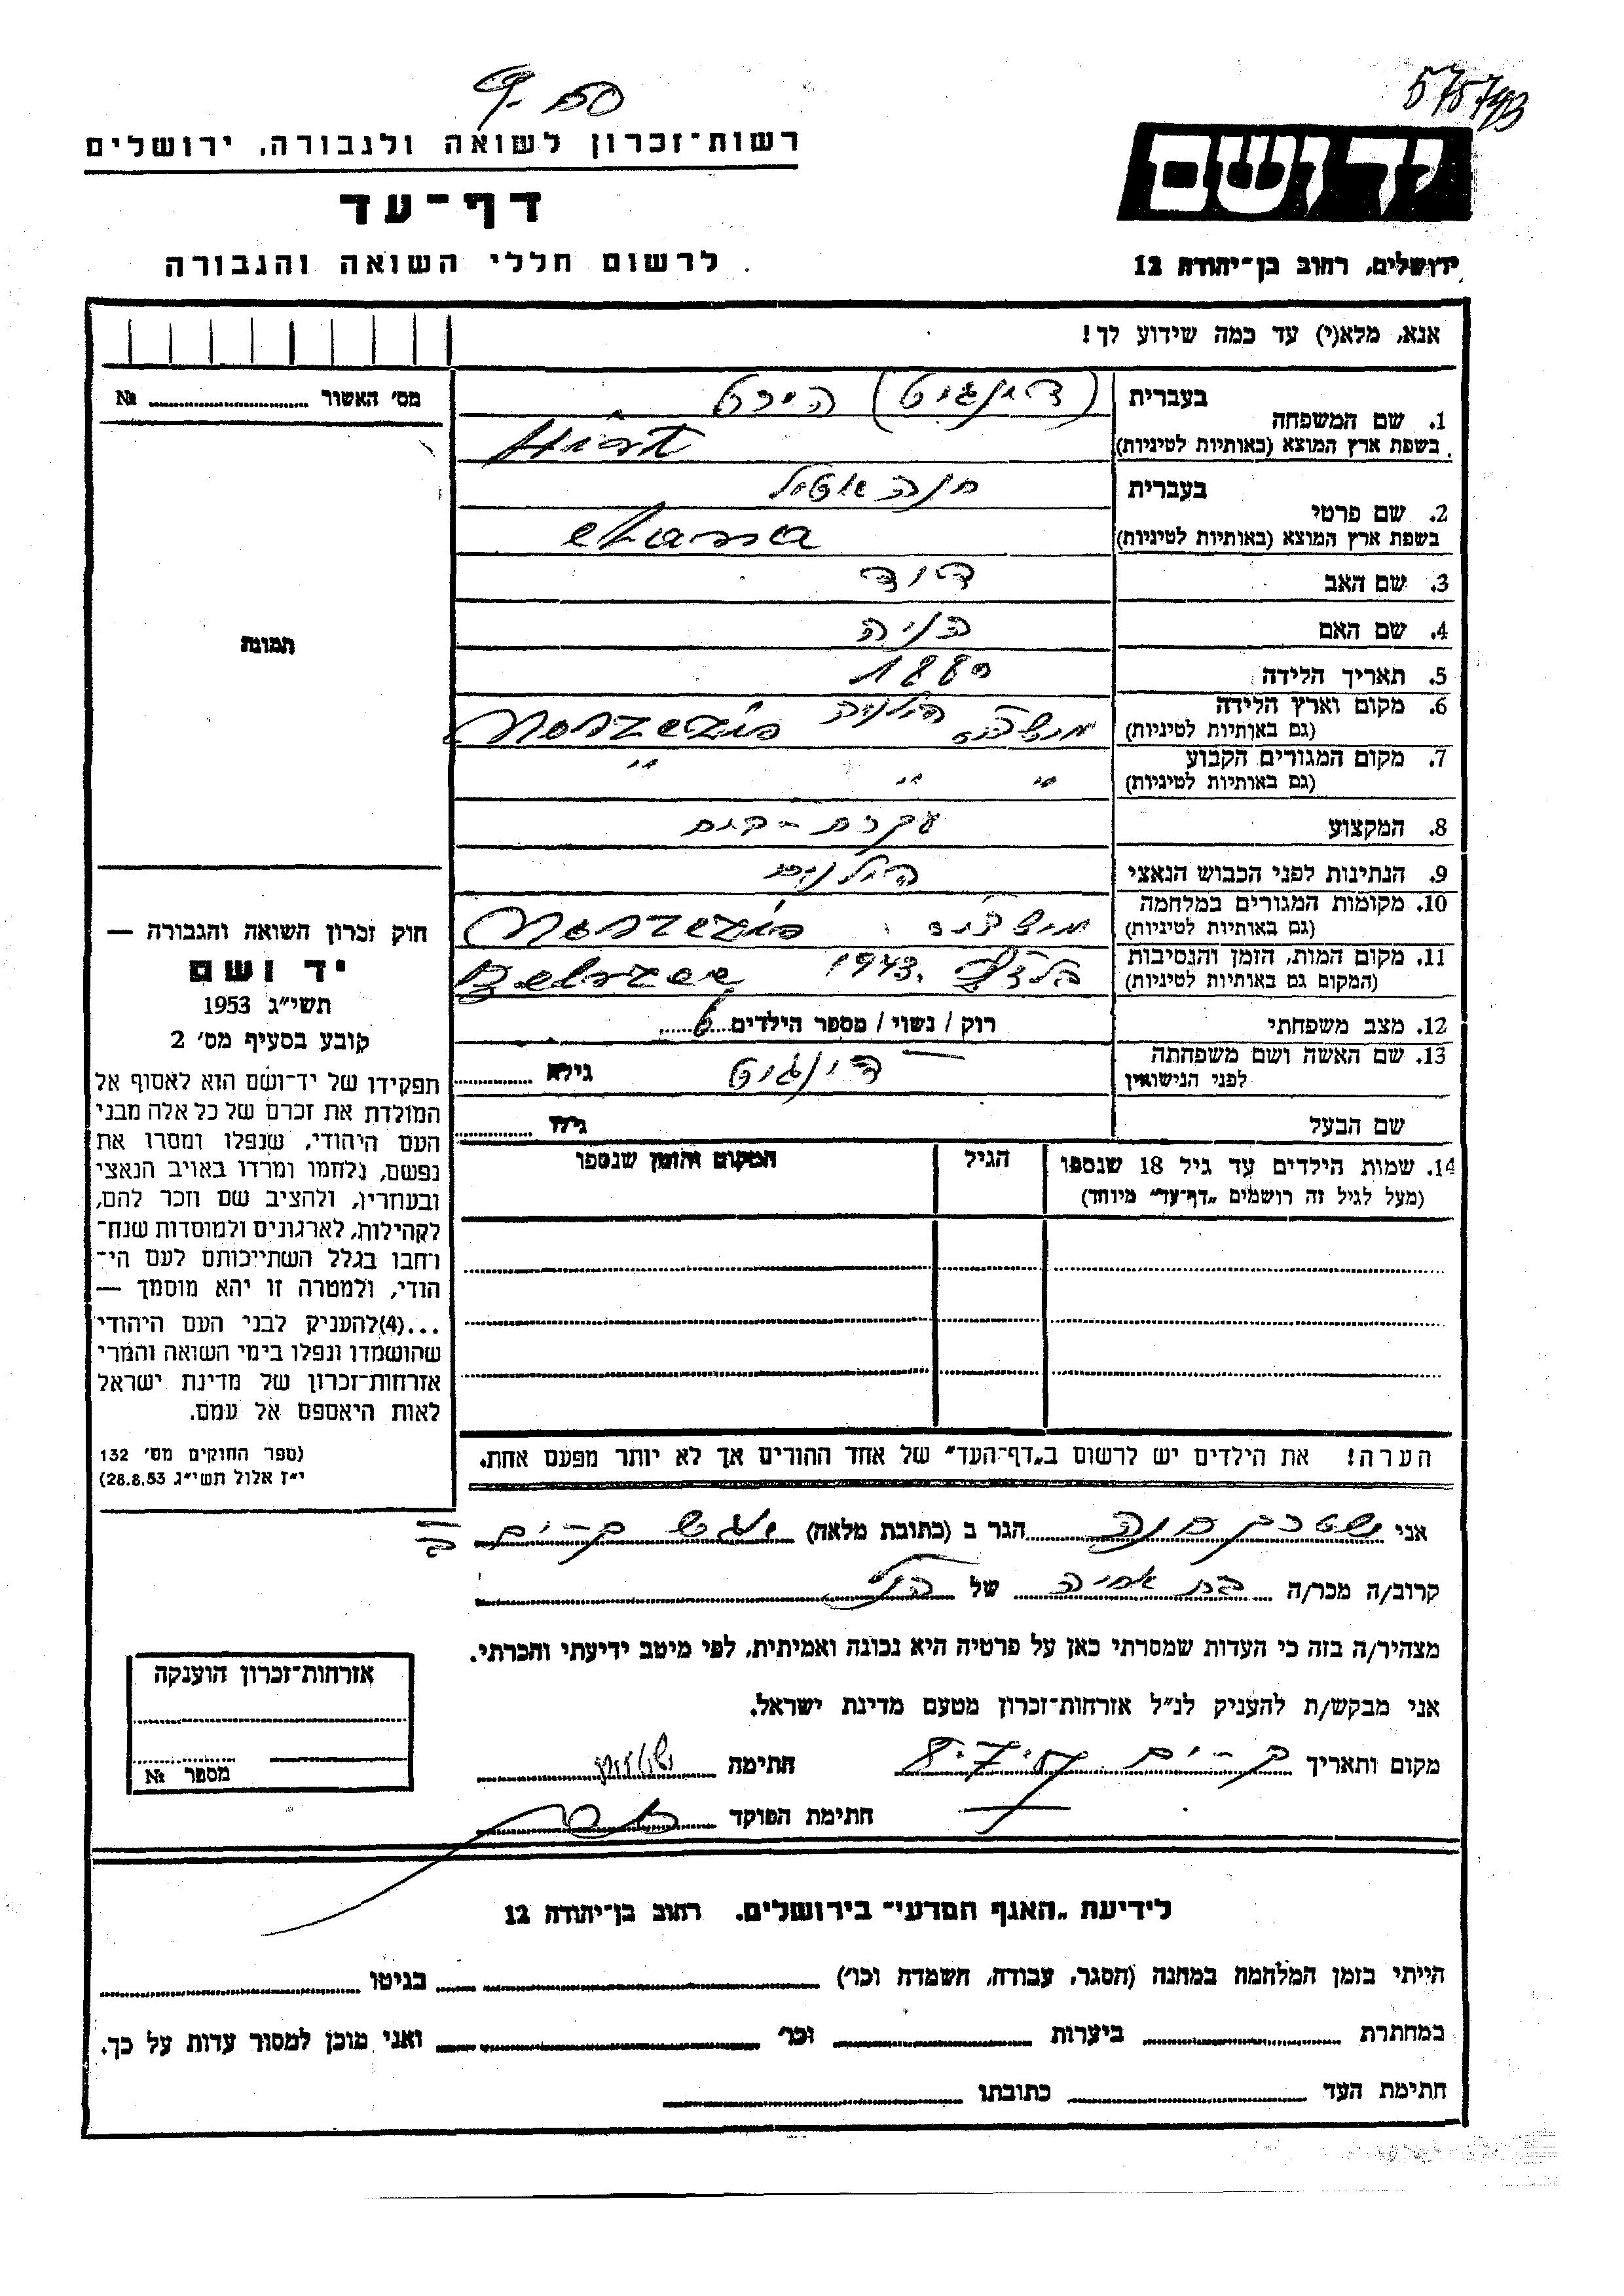 575793
רשות־זכרון לשואה ולגבורה, ירושלים
יד ושם
דף־עד
לרשום חללי השואה והגבורה
ירושלים, רחוב בן־יהודה 12
אנא, מלא(י) עד כמה שידוע לך!
מס׳ האשור № 
1. שם המשפחה
בעברית הירט
בשפת ארץ המוצא (באותיות לטיניות) Hirt
2. שם פרטי
בעברית חנה אטיל
בשפת ארץ המוצא (באותיות לטיניות) Chana
3. שם האב דוד
4. שם האם
5. תאריך הלידה 1880
6. מקום וארץ הלידה
(גם באותיות לטיניות)
7. מקום המגורים הקבוע " " "
(גם באותיות לטיניות)
8. המקצוע עקרת־בית
9. הנתינות לפני הכבוש הנאצי
10. מקומות המגורים במלחמה
(גם באותיות לטיניות)
11. מקום המות, הזמן והנסיבות 1943
(המקום גם באותיות לטיניות)
12. מצב משפחתי רוק / נשוי / מספר הילדים 6
13. שם האשה ושם משפחתה
לפני הנישואין גילא
שם הבעל גילו
14. שמות הילדים עד גיל 18 שנספו
(מעל לגיל זה רושמים „דף־עד” מיוחד)
הגיל
המקום והזמן שנספו
הערה! את הילדים יש לרשום ב„דף־העד” של אחד ההורים אך לא יותר מפעם אחת.
תמונה
חוק זכרון השואה והגבורה —
יד ושם
תשי״ג 1953
קובע בסעיף מס׳ 2
תפקידו של יד־ושם הוא לאסוף אל
המולדת את זכרם של כל אלה מבני
העם היהודי, שנפלו ומסרו את
נפשם, נלחמו ומרדו באויב הנאצי
ובעוזריו, ולהציב שם וזכר להם,
לקהילות, לארגונים ולמוסדות שנח־
רחבו בגלל השתייכותם לעם הי־
הודי, ולמטרה זו יהא מוסמך —
...(4)להעניק לבני העם היהודי
שהושמדו ונפלו בימי השואה והמרי
אזרחות־זכרון של מדינת ישראל
לאות היאספם אל עמם.
(ספר החוקים מס׳ 132
י״ז אלול תשי״ג 28.8.53)
אני חנה הגר ב (כתובת מלאה)
קרוב/ה מכר/ה של הנ״ל
מצהיר/ה בזה כי העדות שמסרתי כאן על פרטיה היא נכונה ואמיתית, לפי מיטב ידיעתי והכרתי.
אני מבקש/ת להעניק לנ״ל אזרחות־זכרון מטעם מדינת ישראל.
מקום ותאריך חתימה
חתימת הפוקד
אזרחות־זכרון הוענקה
מספר №
לידיעת „האגף המדעי” בירושלים, רחוב בן־יהודה 12
הייתי בזמן המלחמה במחנה (הסגר, עבודה, השמדה וכו׳) בגיטו
במחתרת ביערות וכו׳ ואני מוכן למסור עדות על כך.
חתימת העד כתובתו